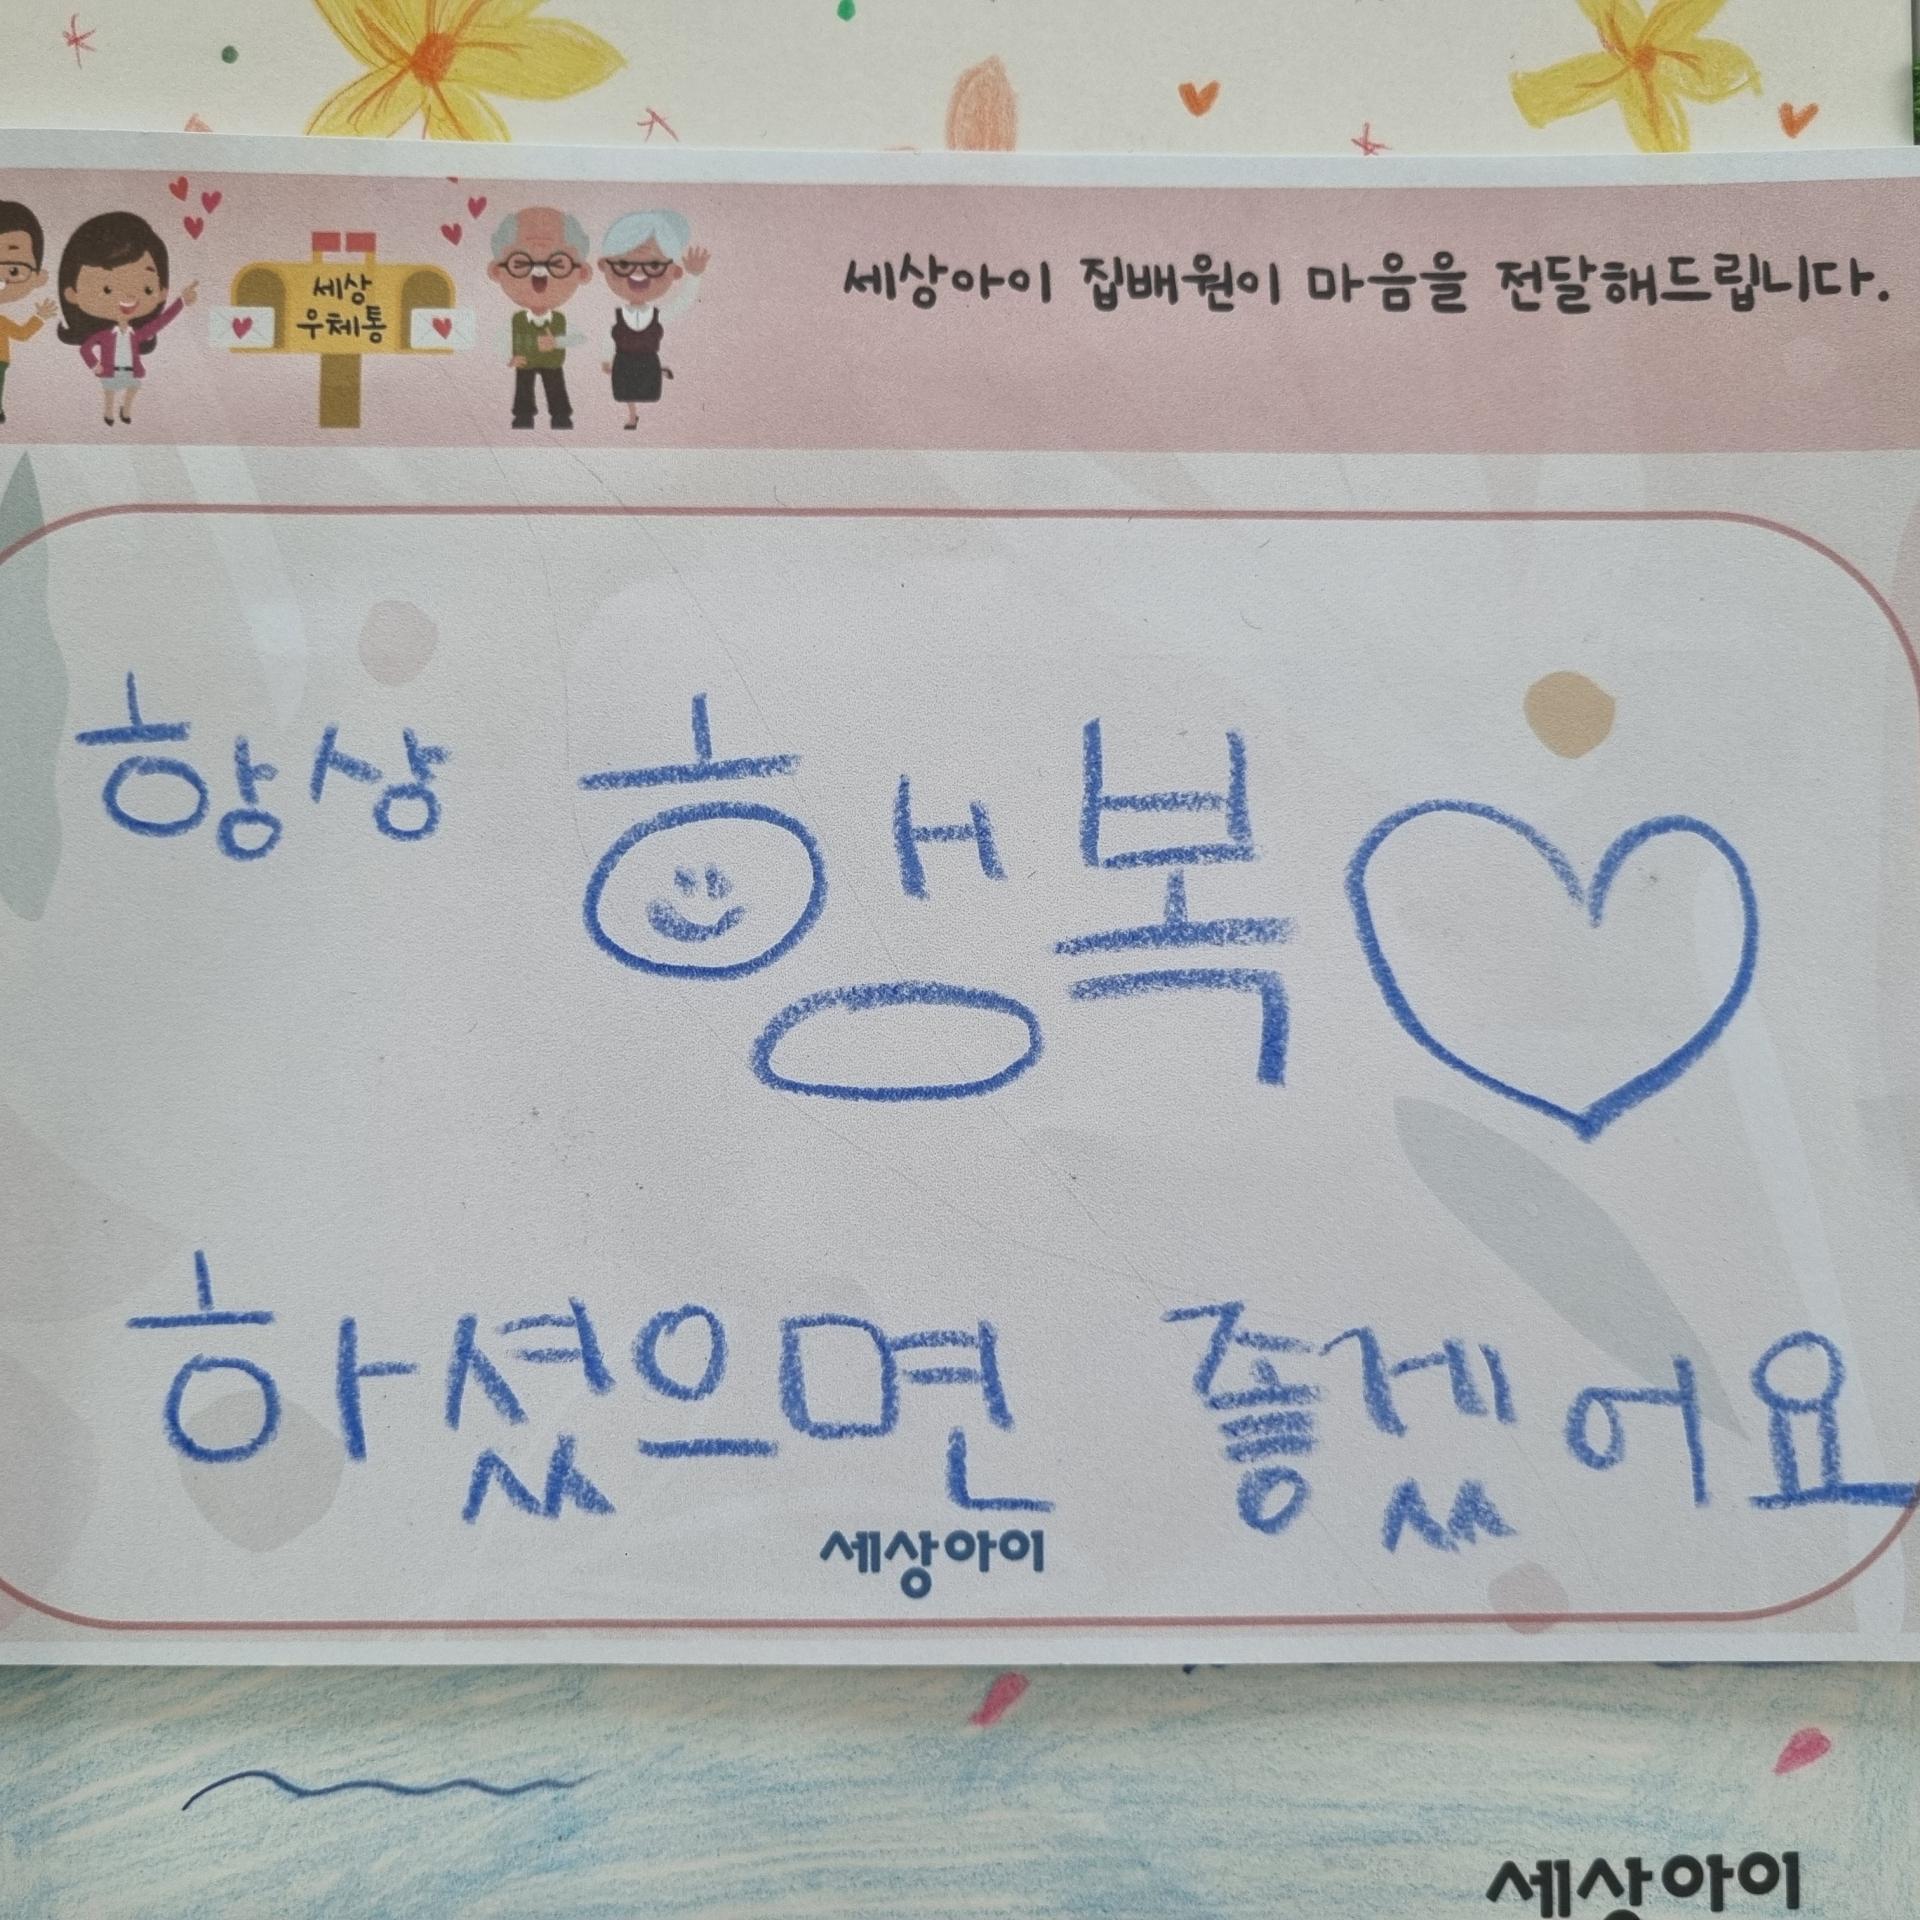 세상아이 집배원이 마음을 전달해드립니다.
세상
우체통
항상 행복
하셨으면 좋겠어요
세상아이
세상아이